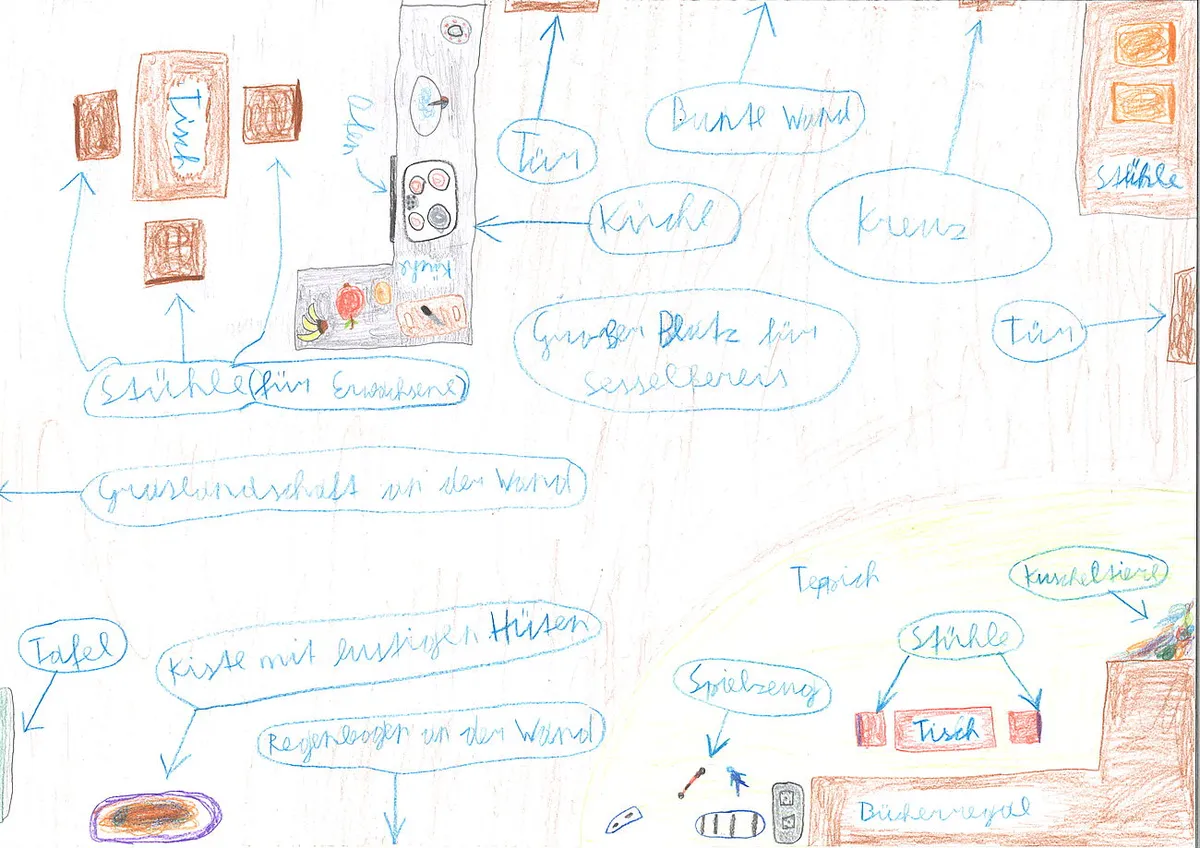 Tisch
Ofen
Tür
Bunte Wand
Kreuz
Stühle
Küche
Küche
Großer Platz für
Sesselkreis
Tür
Stühle (für Erwachsene)
Graslandschaft an der Wand
Teppich
Kuscheltiere
Tafel
Kiste mit lustigen Hüten
Stühle
Spielzeug
Regenbogen an der Wand
Tisch
Bücherregal